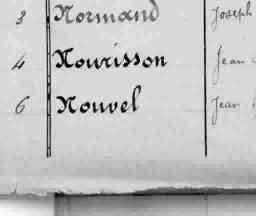 3 Normand Joseph
4 Nourisson Jean
6 Nouvel Jean